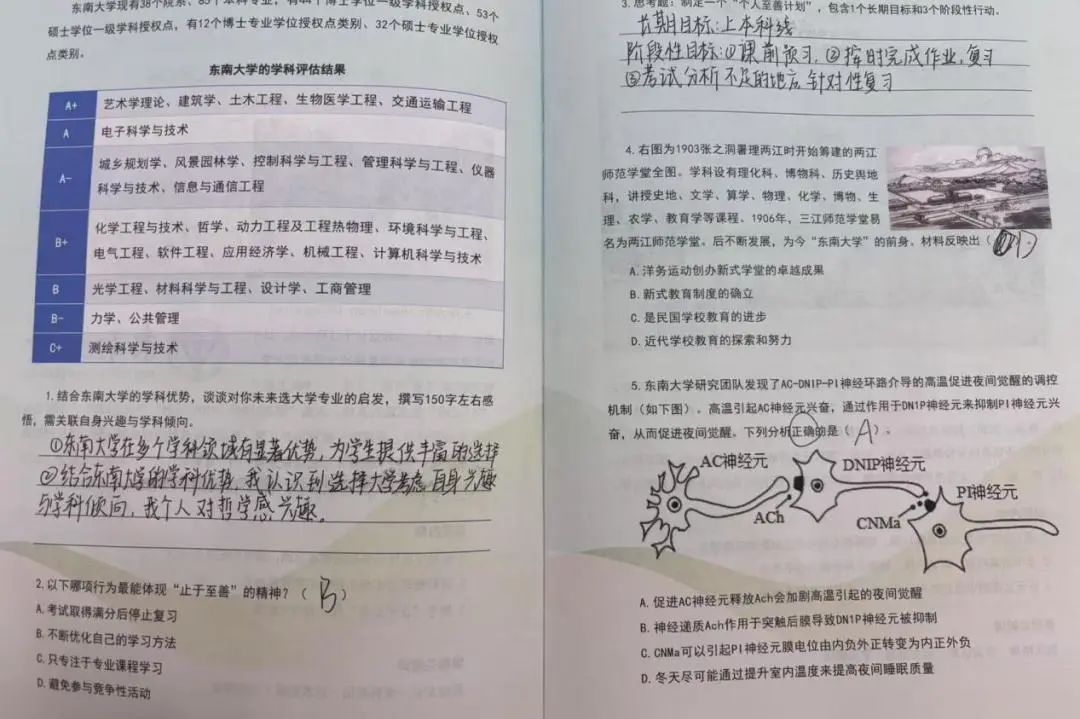 东南大学现有38个院系、85个本科专业，有44个博士学位一级学科授权点、53个
硕士学位一级学科授权点，有12个博士专业学位授权点类别、32个硕士专业学位授权
点类别。
东南大学的学科评估结果
A+ 艺术学理论、建筑学、土木工程、生物医学工程、交通运输工程
A 电子科学与技术
A- 城乡规划学、风景园林学、控制科学与工程、管理科学与工程、仪器
科学与技术、信息与通信工程
B+ 化学工程与技术、哲学、动力工程及工程热物理、环境科学与工程、
电气工程、软件工程、应用经济学、机械工程、计算机科学与技术
B 光学工程、材料科学与工程、设计学、工商管理
B- 力学、公共管理
C+ 测绘科学与技术
1.结合东南大学的学科优势，谈谈对你未来选大学专业的启发，撰写150字左右感
悟，需关联自身兴趣与学科倾向。
①东南大学在多个学科领域有显著优势，为学生提供丰富的选择
②结合东南大学的学科优势，我认识到选择大学考虑自身兴趣
与学科倾向，我个人对哲学感兴趣。
2.以下哪项行为最能体现“止于至善”的精神？（B）
A.考试取得满分后停止复习
B.不断优化自己的学习方法
C.只专注于专业课程学习
D.避免参与竞争性活动
3.思考题：制定一个“个人至善计划”，包含1个长期目标和3个阶段性行动。
长期目标：上本科线
阶段性目标：①课前预习，②按时完成作业，复习
③考试分析不足的地方，针对性复习
4.右图为1903张之洞署理两江时开始筹建的两江
师范学堂全图。学科设有理化科、博物科、历史舆地
科，讲授史地、文学、算学、物理、化学、博物、生
理、农学、教育学等课程。1906年，三江师范学堂易
名为两江师范学堂。后不断发展，为今“东南大学”的前身。材料反映出（D）
A.洋务运动创办新式学堂的卓越成果
B.新式教育制度的确立
C.是民国学校教育的进步
D.近代学校教育的探索和努力
5.东南大学研究团队发现了AC-DNIP-PI神经环路介导的高温促进夜间觉醒的调控
机制（如下图）。高温引起AC神经元兴奋，通过作用于DN1P神经元来抑制PI神经元兴
奋，从而促进夜间觉醒。下列分析正确的是（A）。
AC神经元
DNIP神经元
PI神经元
ACh
CNMa
A.促进AC神经元释放Ach会加剧高温引起的夜间觉醒
B.神经递质Ach作用于突触后膜导致DN1P神经元被抑制
C.CNMa可以引起PI神经元膜电位由内负外正转变为内正外负
D.冬天尽可能通过提升室内温度来提高夜间睡眠质量